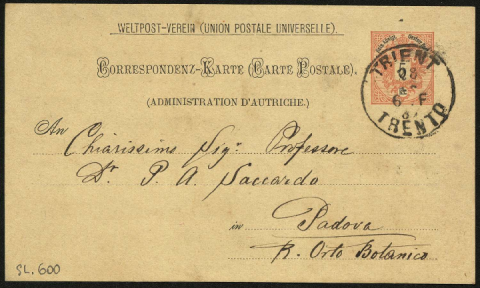 WELTPOST-VEREIN (UNION POSTALE UNIVERSELLE).
CORRESPONDENZ-KARTE (CARTE POSTALE).
(ADMINISTRATION D'AUTRICHE.)
TRIENT
TRENTO
An
Chiarissimo Sigr. Professore
Dr. P. A. Saccardo
in
Padova
R. Orto Botanico
SL. 600